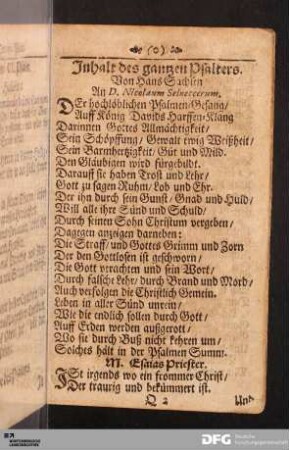 (0)
Inhalt des gantzen Psalters.
Von Hans Sachsen
An D. Nicolaum Selneccerum.
DEr hochlöblichen Psalmen/Gesang/
Auff König Davids Harffen-Klang
Darinnen Gottes Allmächtigkeit/
Sein Schöpffung/ Gewalt ewig Weißheit/
Sein Barmhertzigkeit/ Güt und Mild.
Den Gläubigen wird fürgebildt.
Darauff sie haben Trost und Lehr/
Gott zu sagen Ruhm/ Lob und Ehr.
Der ihn durch sein Gunst/ Gnad und Huld/
Will alle ihre Sünd und Schuld/
Durch seinen Sohn Christum vergeben/
Dagegen anzeigen darneben:
Die Straff/ und Gottes Grimm und Zorn
Der den Gottlosen ist geschworn/
Die Gott verachten und sein Wort/
Durch falsche Lehr/ durch Brand und Mord/
Auch verfolgen die Christlich Gemein.
Leben in aller Sünd unrein/
Wie die endlich sollen durch Gott/
Auff Erden werden außgerott/
Wo sie durch Buß nicht kehren um/
Solches hält in der Psalmen Summ.
M. Esaias Priester.
ISt irgends wo ein frommer Christ/
Der traurig und bekümmert ist.
Q 2
Und
DFG